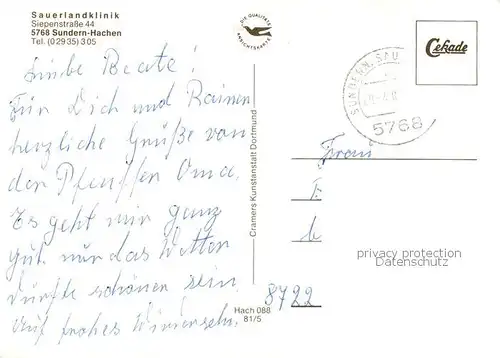 Sauerlandklinik
Siepenstraße 44
5768 Sundern-Hachen
Tel. (0 29 35) 3 05
DIE QUALITÄTS
ANSICHTSKARTE
Cekade
SUNDERN, SAU
5768
Liebe Beate!
Für Dich und Rainer
herzliche Grüße von
der Oma.
Es geht mir ganz
gut. nur das Wetter
dürfte schöner sein.
Auf frohes Wiedersehn.
Cramers Kunstanstalt Dortmund
Hach 088
81/5
Frau
8722
privacy protection
Datenschutz